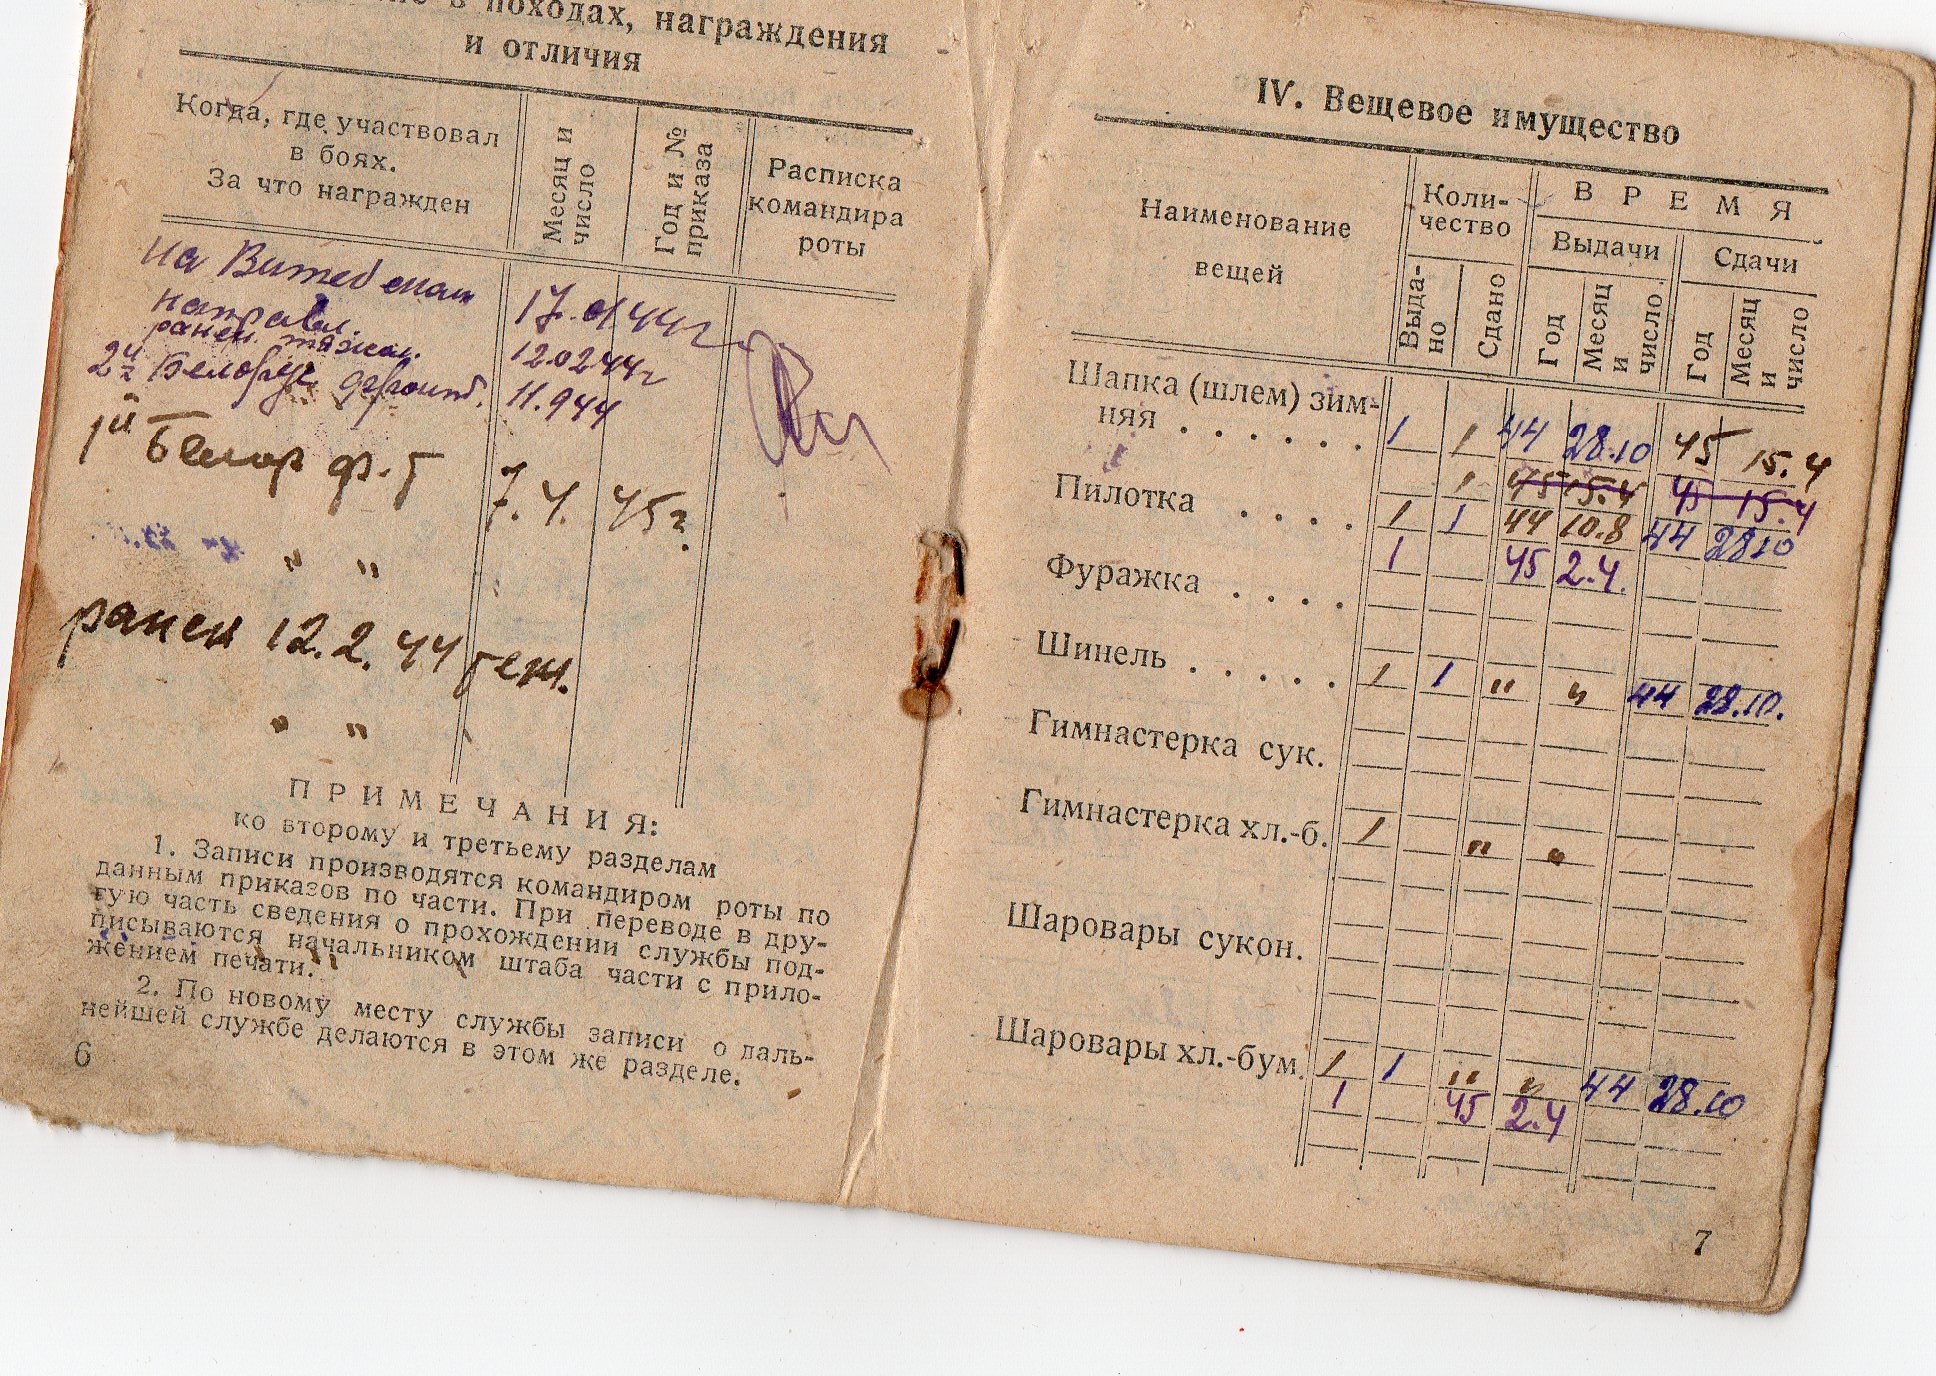 в походах, награждения
и отличия
Когда, где участвовал
в боях.
За что награжден
Месяц и
число
Год и №
приказа
Расписка
командира
роты
на Витебском 17.01 44г
направл.
ранен тяжел. 12.02 44г
2й Белорус фронт. 11.9 44
1й Белор ф-т 7.4. 45г.
" "
ранен 12.2.44 тяж.
" "
ПРИМЕЧАНИЯ:
ко второму и третьему разделам
1. Записи производятся командиром роты по
данным приказов по части. При переводе в дру-
гую часть сведения о прохождении службы под-
писываются начальником штаба части с прило-
жением печати.
2. По новому месту службы записи о даль-
нейшей службе делаются в этом же разделе.
6
IV. Вещевое имущество
Наименование
вещей
Коли-
чество
ВРЕМЯ
Выдачи
Сдачи
Выда-
но
Сдано
Год
Месяц
и
число
Год
Месяц
и
число
Шапка (шлем) зим-
няя . . . . . . 1 1 44 28.10 45 15.4
1 45 15.4 45 15.4
Пилотка . . . . 1 1 44 10.8 44 28.10
1 45 2.4.
Фуражка . . . .
Шинель . . . . . 1 1 " " 44 28.10.
Гимнастерка сук.
Гимнастерка хл.-б. 1 " "
Шаровары сукон.
Шаровары хл.-бум. 1 1 " " 44 28.10
1 45 2.4
7